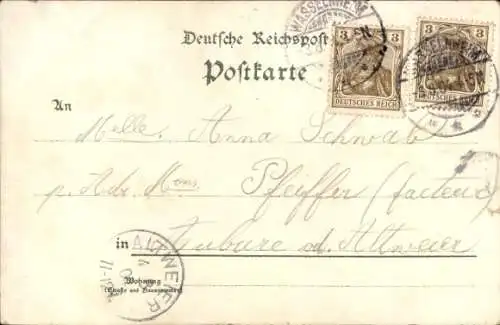 WASSELNHEIM
3 3
DEUTSCHES REICH
3 3
DEUTSCHES REICH
Deutsche Reichspost
Postkarte
An
Melle. Anna Schwab
p. Adr. Mons Pfeiffer (facteur)
in Aubure od. Altweier
Wohnung
(Straße und Hausnummer)
ALTWEIER